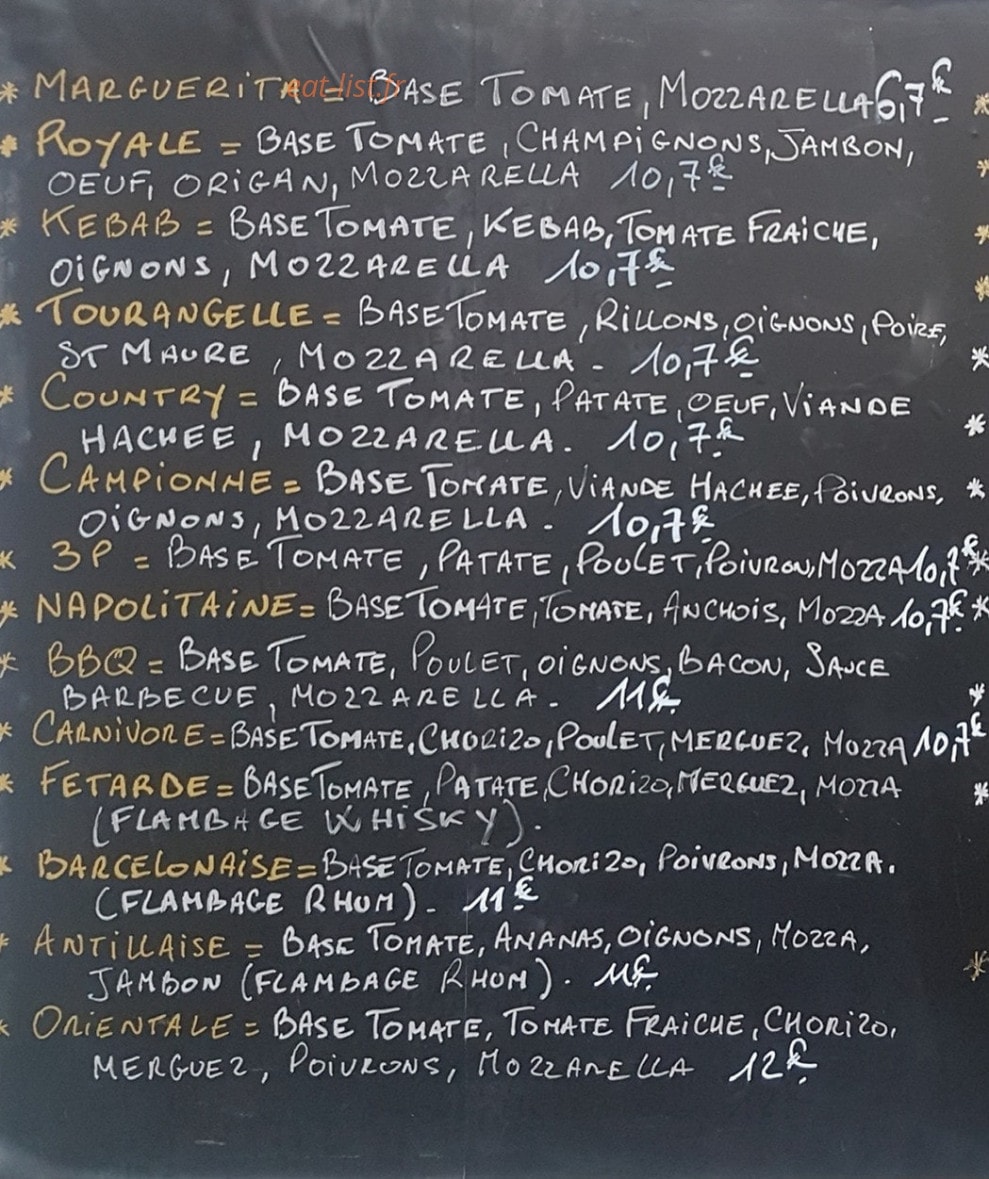 * MARGUERITA = BASE TOMATE, MOZZARELLA 6,7€ *
eat-list.fr
* ROYALE = BASE TOMATE, CHAMPIGNONS, JAMBON,
OEUF, ORIGAN, MOZZARELLA 10,7€ *
* KEBAB = BASE TOMATE, KEBAB, TOMATE FRAICHE, *
OIGNONS, MOZZARELLA 10,7€ *
* TOURANGELLE = BASE TOMATE, RILLONS, OIGNONS, POIRE,
ST MAURE, MOZZARELLA. 10,7€ *
* COUNTRY = BASE TOMATE, PATATE, OEUF, VIANDE
HACHEE, MOZZARELLA. 10,7€ *
* CAMPIONNE = BASE TOMATE, VIANDE HACHEE, POIVRONS, *
OIGNONS, MOZZARELLA. 10,7€
* 3P = BASE TOMATE, PATATE, POULET, POIVRON, MOZZA 10,7€ *
* NAPOLITAINE = BASE TOMATE, TOMATE, ANCHOIS, MOZZA 10,7€ *
* BBQ = BASE TOMATE, POULET, OIGNONS, BACON, SAUCE
BARBECUE, MOZZARELLA. 11€ *
* CARNIVORE = BASE TOMATE, CHORIZO, POULET, MERGUEZ, MOZZA 10,7€
* FETARDE = BASE TOMATE, PATATE, CHORIZO, MERGUEZ, MOZZA *
(FLAMBAGE WHISKY).
* BARCELONAISE = BASE TOMATE, CHORIZO, POIVRONS, MOZZA.
(FLAMBAGE RHUM). 11€
* ANTILLAISE = BASE TOMATE, ANANAS, OIGNONS, MOZZA,
JAMBON (FLAMBAGE RHUM). 11€ *
* ORIENTALE = BASE TOMATE, TOMATE FRAICHE, CHORIZO,
MERGUEZ, POIVRONS, MOZZARELLA 12€